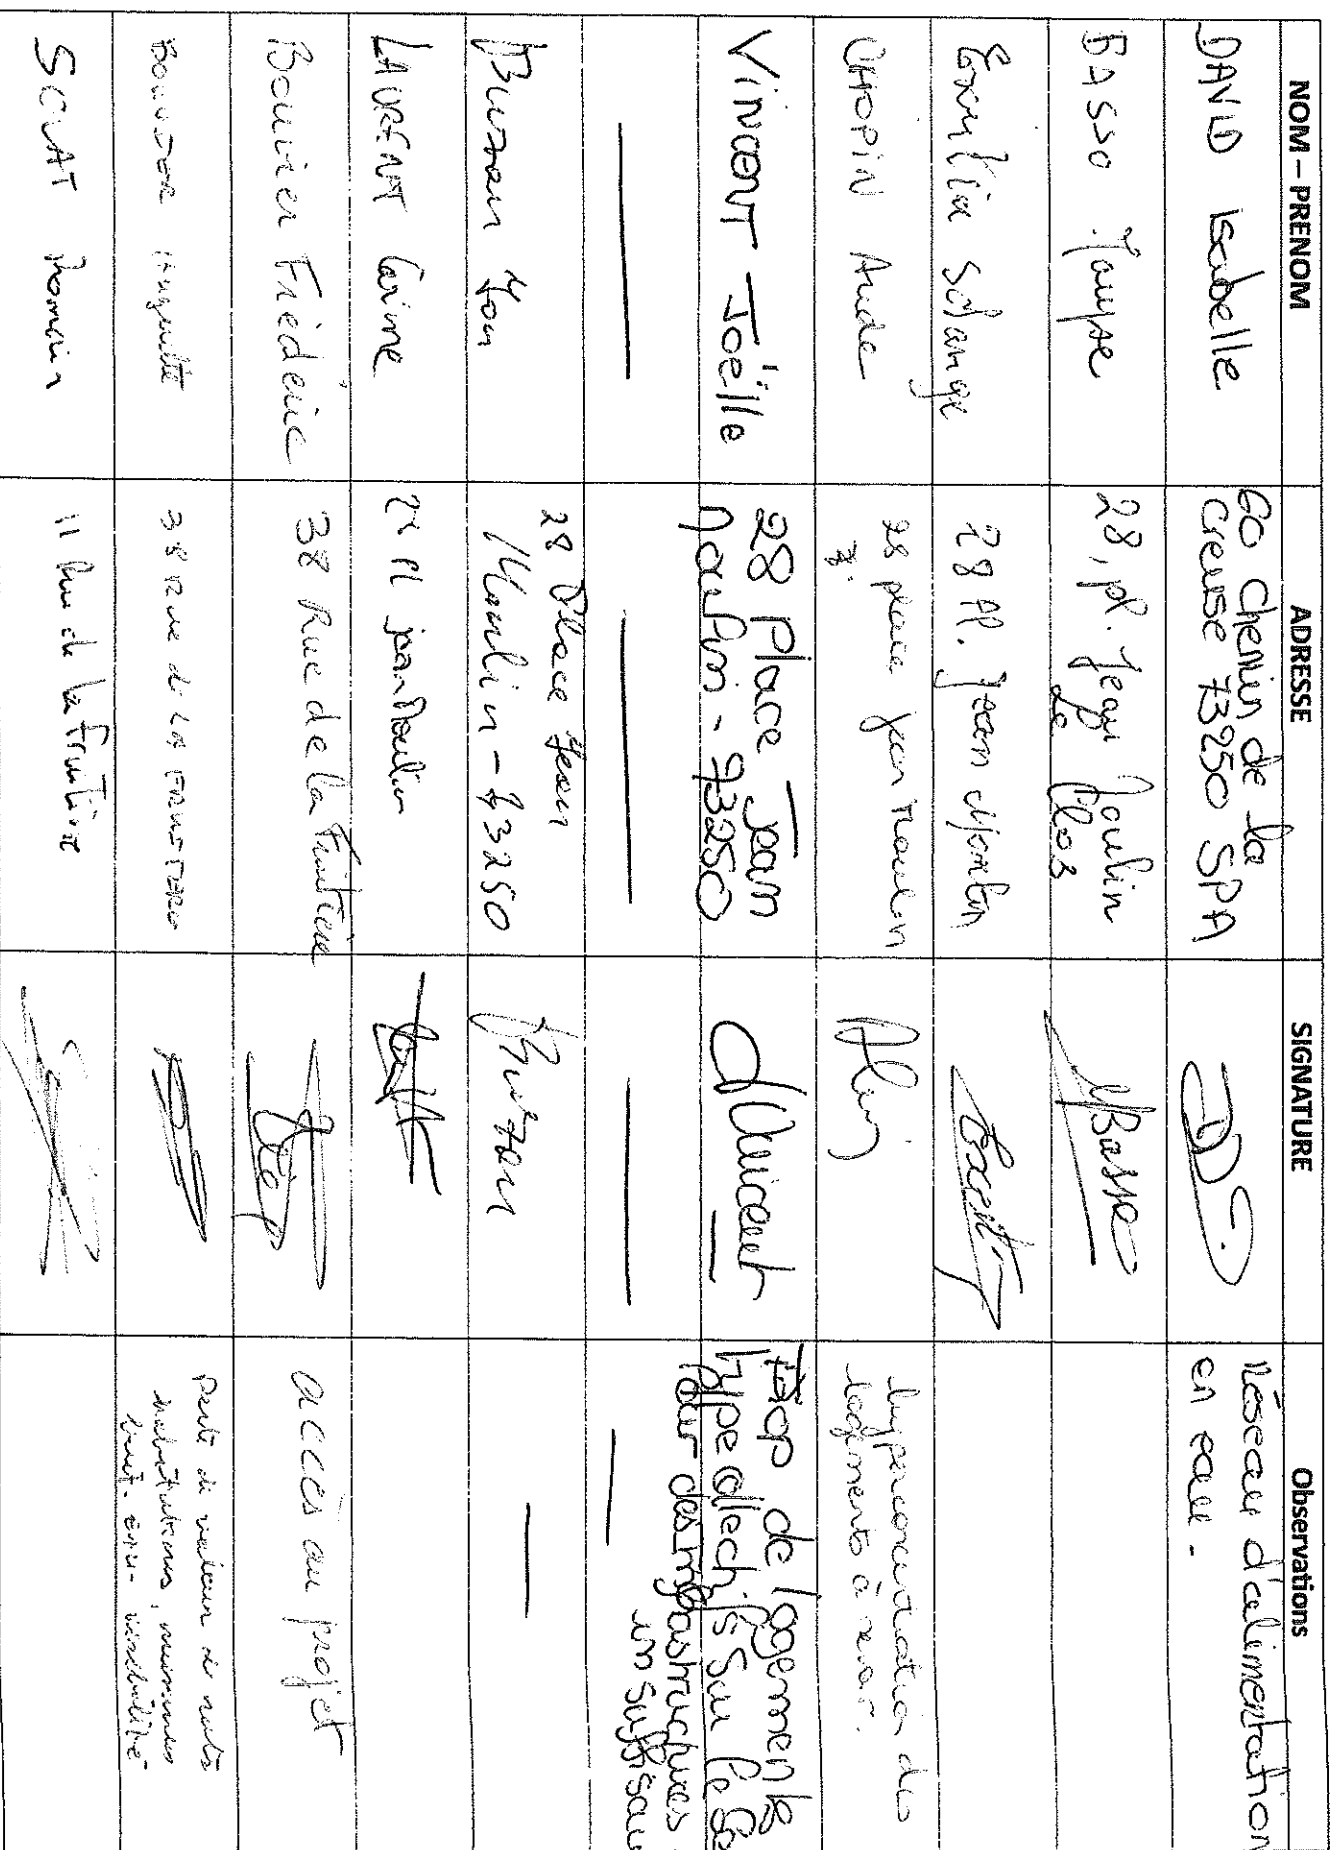 NOM – PRENOM ADRESSE SIGNATURE Observations
DAVID Isabelle
60 Chemin de la
Creuse 73250 SPA
Réseau d'alimentation
en eau.
BASSO Maryse
28, pl. Jean Moulin
Le Clos
MBasso
Solange
28 Pl. Jean Moulin
CHOPIN Aude
28 place jean moulin
hyperconcentration des
logements à revoir.
VINCENT Joëlle
28 Place Jean
Moulin - 73250
JVincent
Trop de logements
type collectifs sur le
pour des infrastructures
insuffisan
28 Place Jean
Moulin - 73250
LAURENT Carine
28 Pl jean Moulin
Bouvier Frédéric
38 Rue de la Fruitière
accès au projet
38 Rue de LA
Perte de valeur de nots
habitations, nuisances
bruit - visibilité
SCLAT Romain
11 Rue de la fruitière